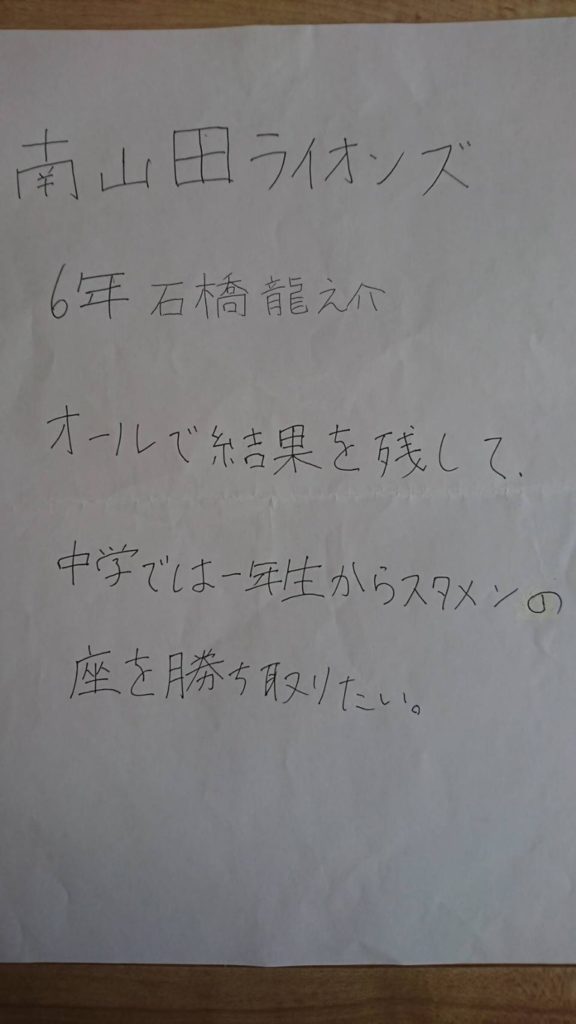 南山田ライオンズ
6年 石橋龍之介
オールで結果を残して、
中学では一年生からスタメンの
座を勝ち取りたい。